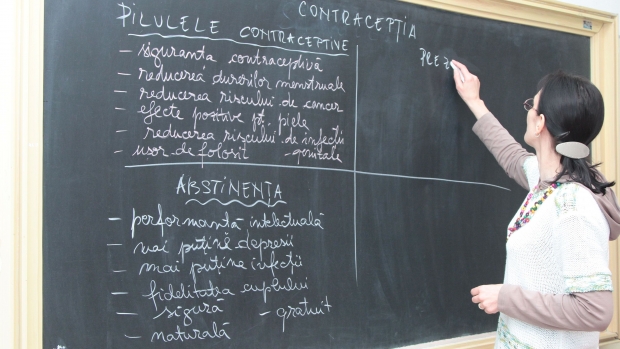 CONTRACEPȚIA
PILULELE CONTRACEPTIVE
- siguranta contraceptivă
- reducerea durerilor menstruale
- reducerea riscului de cancer
- efecte pozitive pt. piele
- reducerea riscului de infecții
- usor de folosit - genitale
PREZ
ABSTINENȚA
- performantă intelectuală
- mai puține depresii
- mai puține infecții
- fidelitatea cuplului
- sigură - gratuit
- naturală